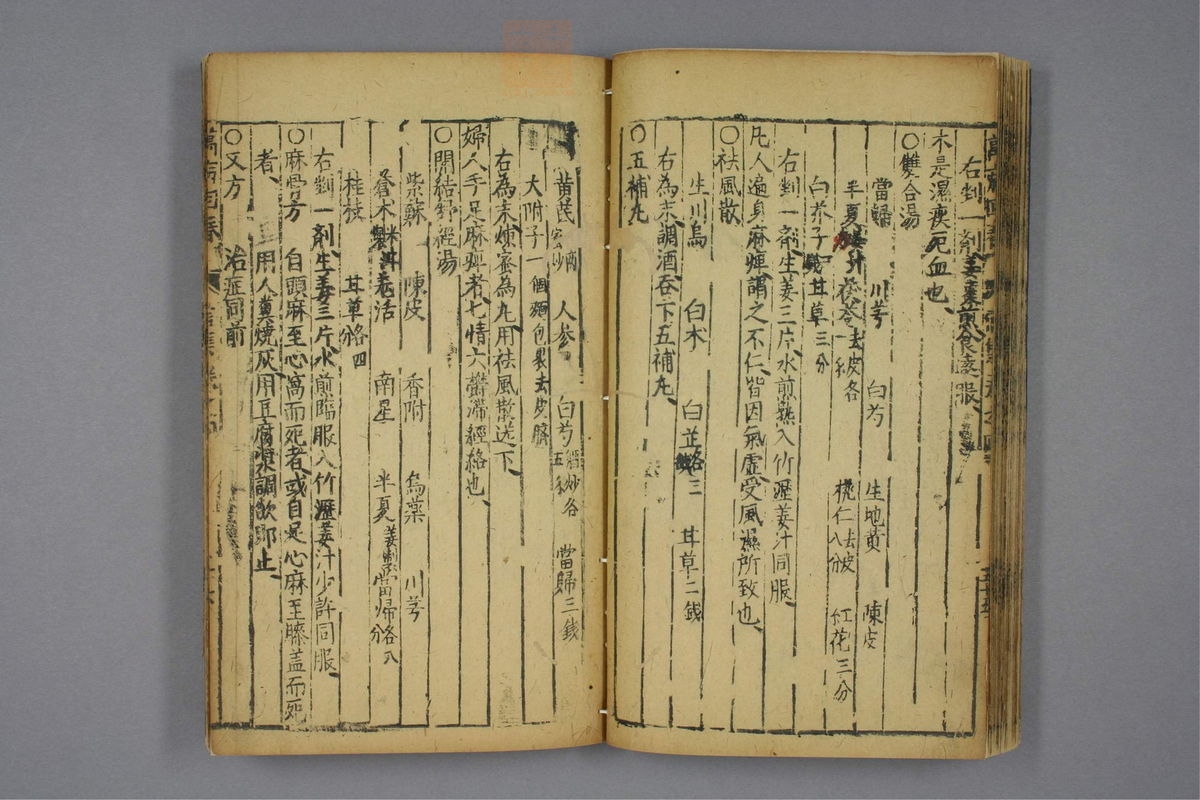 右剉一剤姜棗煎食遠服
木是濕痰死血也
○雙合湯
當歸 川芎 白芍 生地黄 陳皮
半夏 茯苓去皮各一 桃仁八分去皮 紅花三分
白芥子 甘草三分
右剉一剤生姜三片水煎熟入竹瀝姜汁同服
凡人遍身麻痺謂之不仁皆因氣虚受風濕所致也
○祛風散
生川烏 白术 白芷各三錢 甘草二錢
右為末調酒吞下五補丸
○五補丸
黄芪蜜炒 人參 白芍酒炒各五 當歸三錢
大附子一個麵包裹去皮臍
右為末煉蜜為丸用祛風散送下
婦人手足麻痺者七情六鬱滯經絡也
○開結舒經湯
紫蘇 陳皮 香附 烏藥 川芎
蒼术米泔製 羌活 南星 半夏姜製 當帰各八分
桂枝 甘草各四
右剉一剤生姜三片水煎臨服入竹瀝姜汁少許同服
○麻骨方 自頭麻至心窩而死者或自足心麻至膝蓋而死
者 用人糞燒灰用豆腐漿水調飲即止
○又方 治症同前